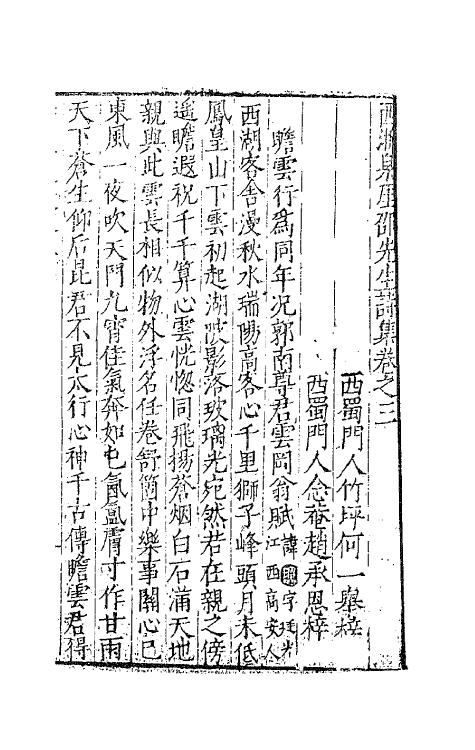 西浙泉厓邵先生詩集卷之三
西蜀門人竹坪何一舉梓
西蜀門人念菴趙承恩梓
瞻雲行爲同年况郭南尊君雲岡翁賦
江西高安人
西湖客舍漫秋水瑞陽高客心千里獅子峰頭月未低
鳳皇山下雲初起湖陂影落玻璃光宛然若在親之傍
遥瞻遐祝千千算心雲恍惚同飛揚蒼烟白石滿天地
親與此雲長相似物外浮名任卷舒箇中樂事關心已
東風一夜吹天門九霄佳氣奔如屯氤氳膚寸作甘雨
天下蒼生仰后昆君不見太行心神千古傳瞻雲君得